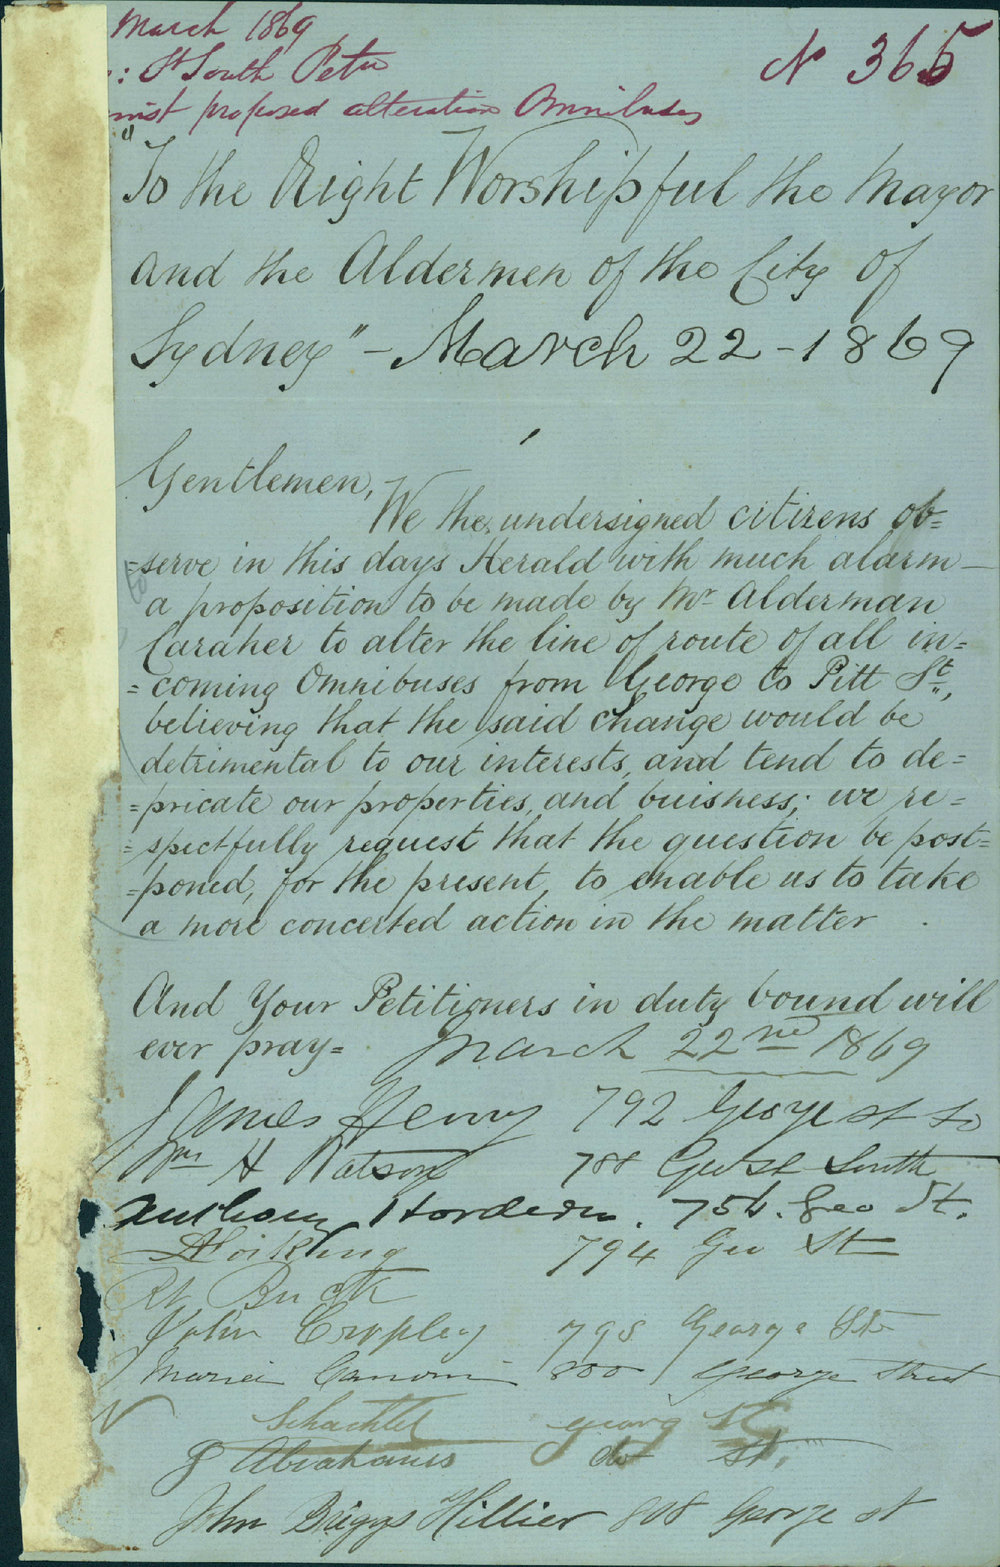 March 1869
N 365
: St South Petn
inst proposed alteration Omnibuses
"To the Right Worshipful the Mayor
and the Aldermen of the City of
Sydney" - March 22 - 1869
Gentlemen,
We the undersigned citizens ob=
=serve in this days Herald with much alarm —
a proposition to be made by Mr Alderman
Caraher to alter the line of route of all in=
=coming Omnibuses from George to Pitt St.,
believing that the said change would be
detrimental to our interests, and tend to de=
=pricate our properties, and buisness; we re=
=spectfully request that the question be post=
=poned, for the present, to enable us to take
a more concerted action in the matter.
And Your Petitioners in duty bound will
ever pray= March 22nd 1869
James Henry 792 George st So
Wm H Watson 788 Geo St South
Anthony Hordern. 756. Geo St.
794 Geo St
John Croppley 798 George St
Maria 800 George Street
Schachtel George St
J Abrahams do St.
John Briggs Hillier 808 George st